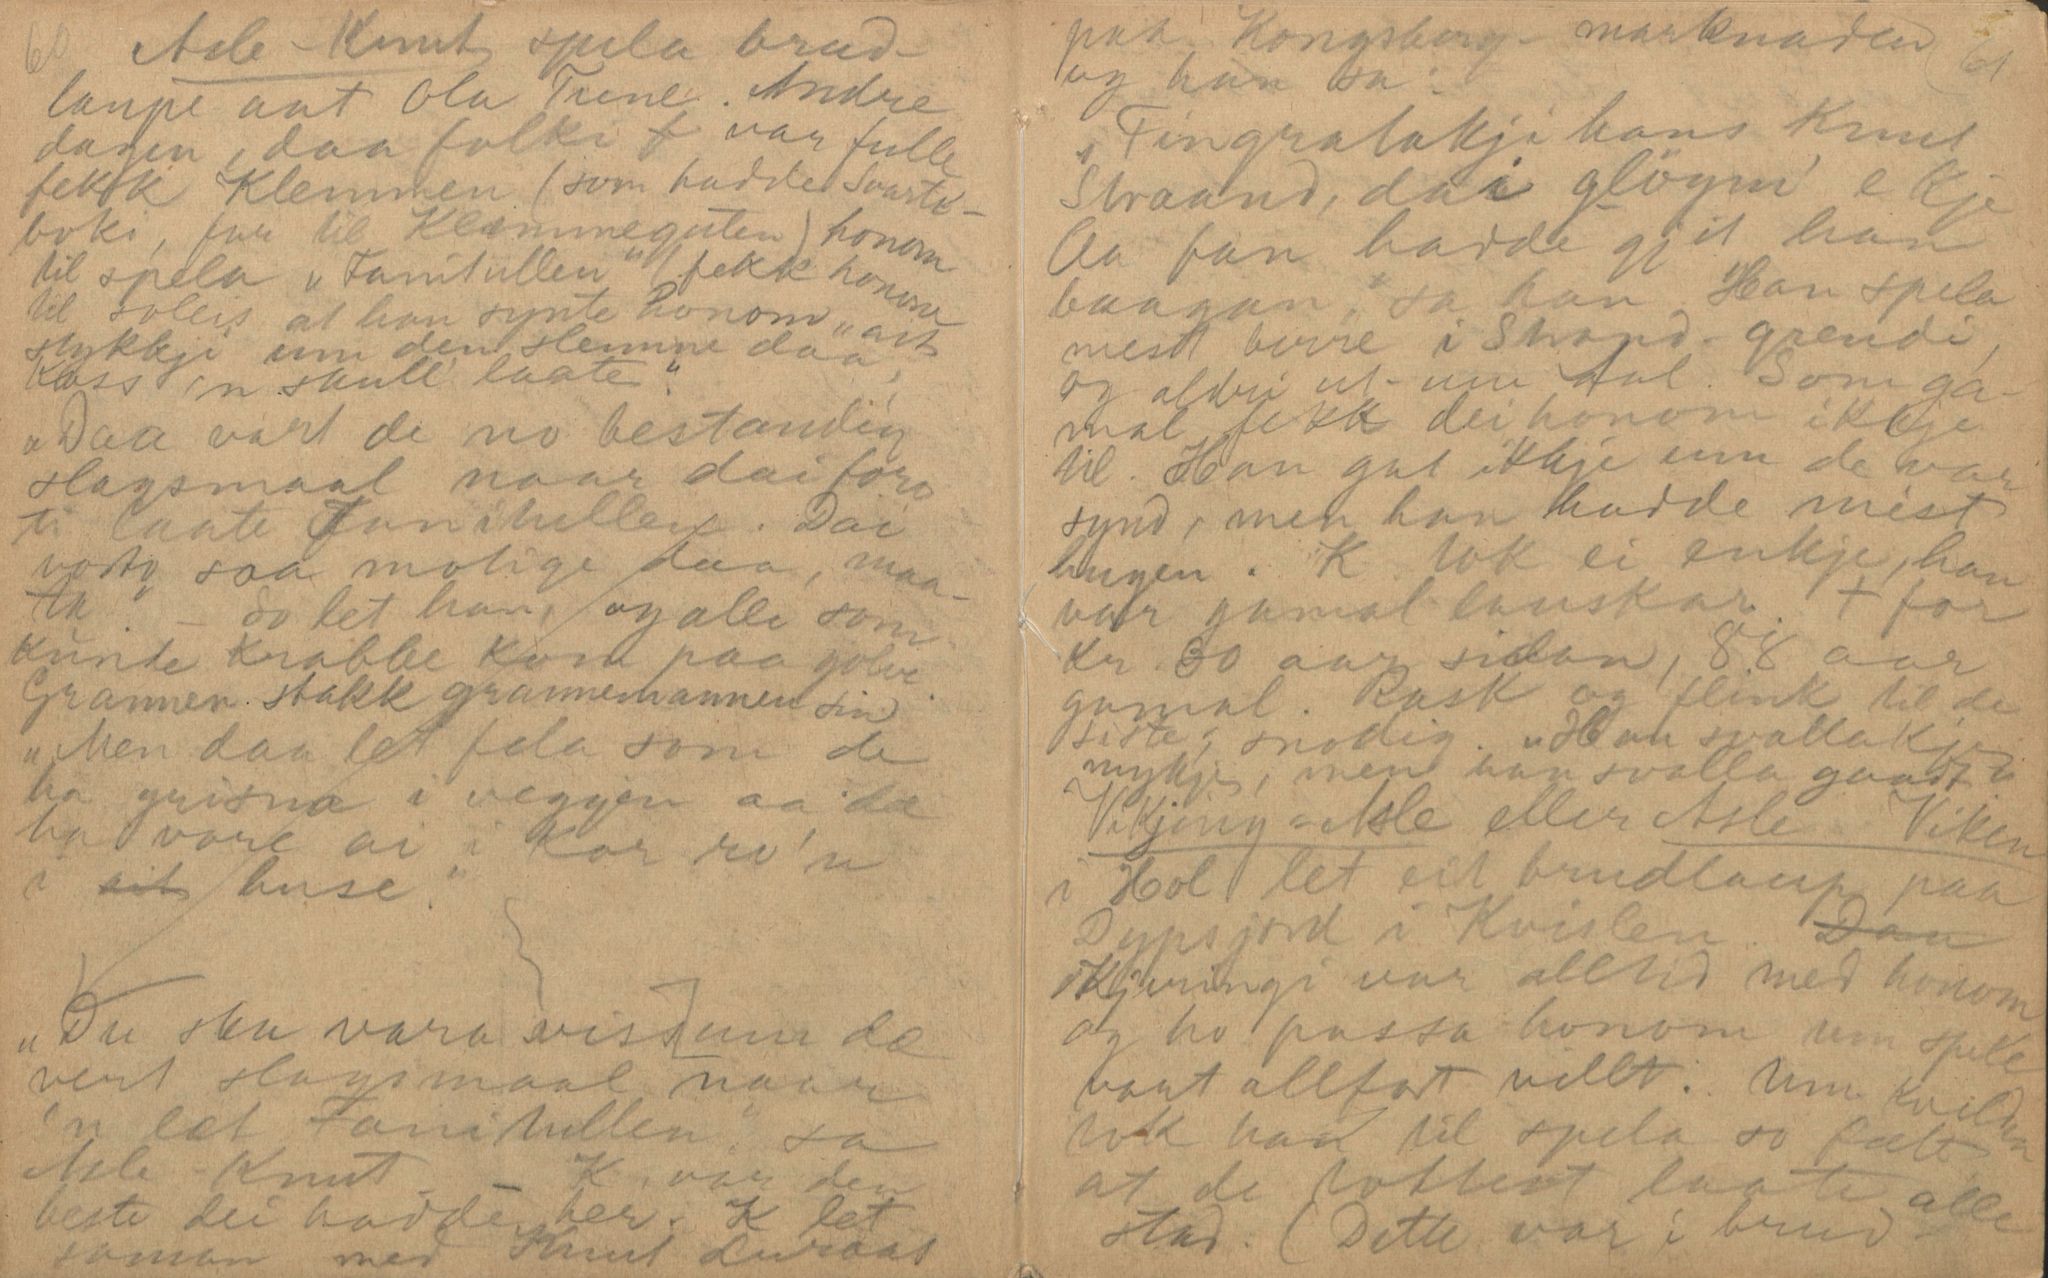 60
Asle-Knut spela brud-
laupe aat Ola Trene. Andre
dagen, daa folki var fulle
fekk Klemmen (som hadde Svarte-
boki, far til Klemmeguten) honom
til spela „Fanitullen" (fekk honom
til soleis at han synte honom „ait
stykkji um den slemme daa,
Koss 'n skull laate"
„Daa vart de no bestandig
slagsmaal naar dai foro
ti laate Fanitullen. Dai
vorto saa motige daa, maa-
tk". - So let han, og alle som
kunde krabbe kom paa golvi.
Grannen stakk grannemannen sin
„Men daa let fela som de
ha grisna i veggen aa dæ
ha vore ai i kor ro'n
i sit huse."
„Du ska vara viss um dæ
vert slagsmaal naar
'n læt Fanitullen" sa
Asle-Knut. - K. var den
beste dei hadde her. K let
saman med Knut Luraas
paa Kongsberg-marknaden
61
og han sa:
„Fingratakji hans Knut
Straand, dai gløym' e kje
Aa fan hadde gjit han
baagan," sa han. Han spela
mest berre i Strand-grendi,
og aldri ut-um Aal. Som ga-
mal fekk dei honom ikkje
til. Han gat ikkje um de var
synd, men han hadde mist
hugen. K tok ei enkje, han
var gamal lauskar. + for
kr 30 aar sidan, 88 aar
gamal. Rask og flink til de
siste, snodig. „Han svalla kje
mykje, men han svalla godt".
Vikjing-Asle eller Asle Viken
i Hol let eit brudlaup paa
Dypsjord i Kvislen. Dau
Kjeringi var alltid med honom
og ho passa honom um spele
vart allfort villt. Um kvelden
tok han til spela so fælt
at de tottest laate alle
stad. (Dette var i brud